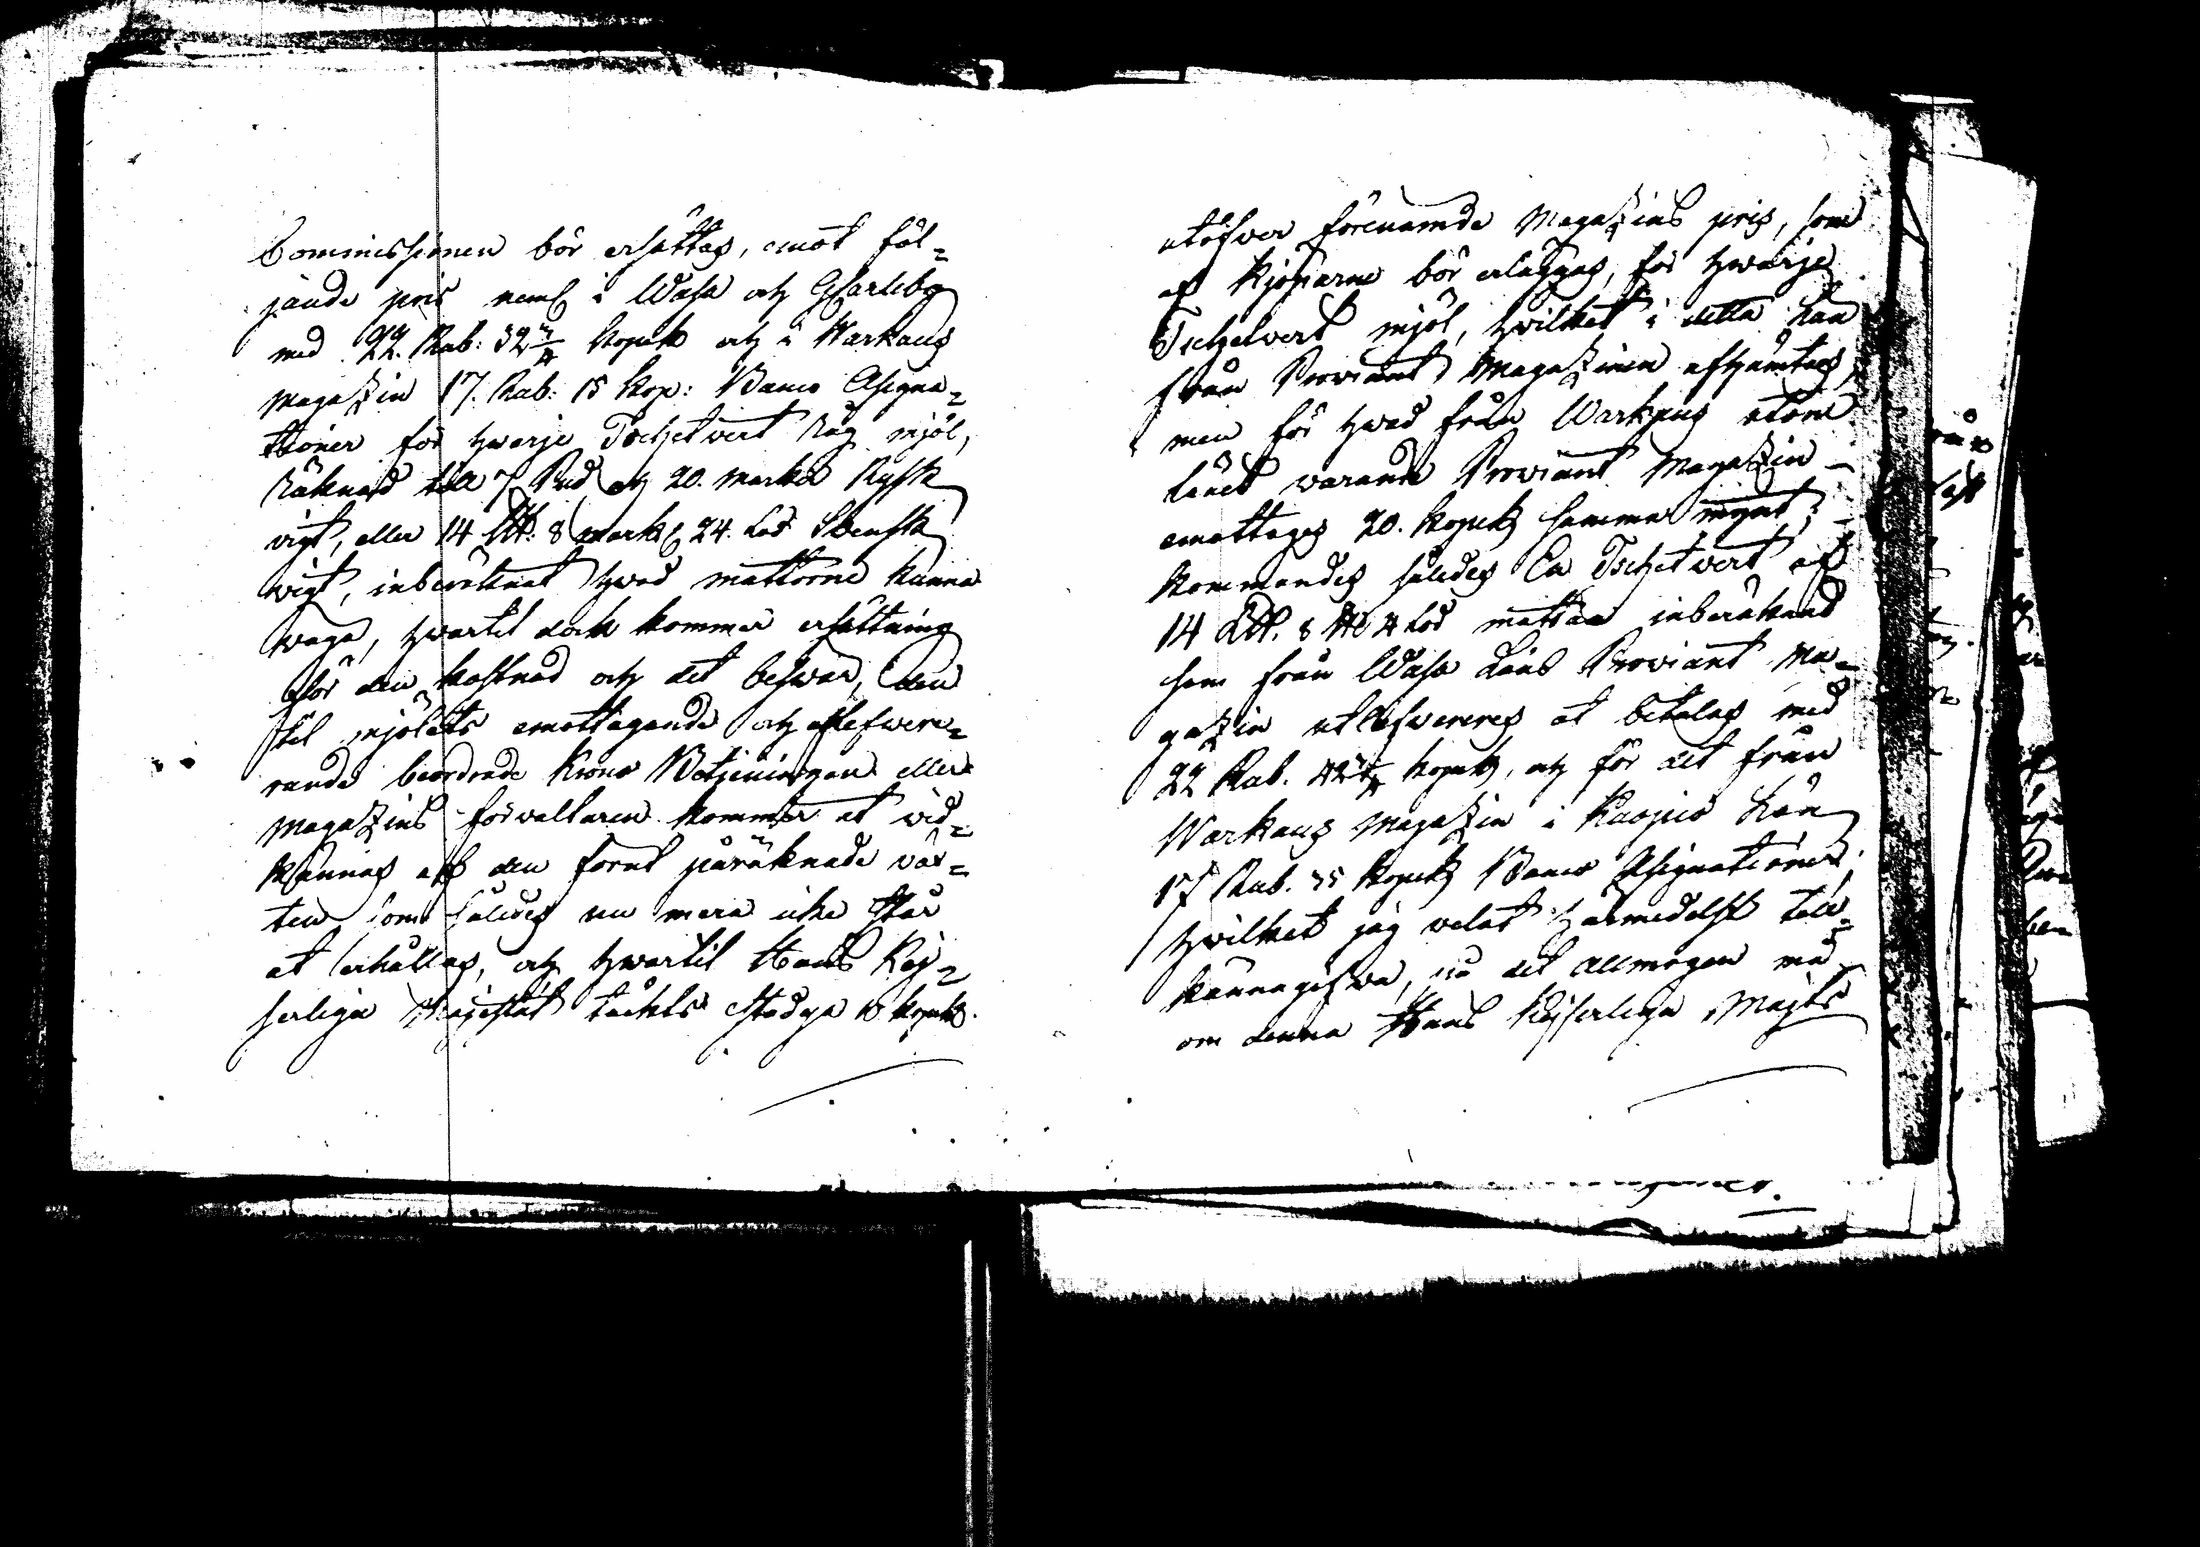 Commissionen bör ersättas, emot föl=
jande pris neml i Wasa och Gcarleby
med 22. Rub: 32 1/4 Kopek och i Warkaus
Magazin 17. Rub: 15 Kop: Banco Assigna=
tioner för hwarje Tschetvert Råg mjöl,
räknad till 7 Pud och 20. marker Rysk
vigt, eller 14 L℔: 8 mark 24. Lod Svensk
vigt, inberäknat hwad mattorne kunna
väga, hwartil dock kommer ersättning
för den kostnad och det beswär, den
til mjölets emottagande och aflefwere=
rande beordrade Krono Betjeningen eller
Magazins förvaltaren kommer at vid=
kännas af den förut påräknade väx=
ten som således nu mera icke står
at erhållas, och hwartil Hans Kej=
serliga Majestät täckts stadga 10 Kopek.
utöfver förenämde Magazins pris, som
af Kjöparne bör erläggas, för hwarje
Tschetvert mjöl, hwilket i detta Län
från Proviant Magazinen afhämtas,
men för hwad från Warkaus utom
Länet warande Proviant Magazin
emottages 20. Kopek samma mynt;
kommandes således En Tschetvert af
14 L℔. 8 ℔ 24 Lod mattan inberäknad
som från Wasa Läns Proviant Ma=
gazin utlefwereres at betalas med
22 Rub. 42 1/4 Kopek, och för det från
Warkaus Magazin i Kuopio Län
17 Rub. 35 Kopek Banco Assignationer;
hwilket jag velat härmedelst till=
kännagifva, på det Allmogen må
om denna Hans Kejserliga Majts